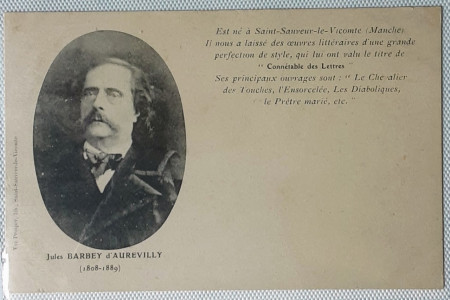 Est né à Saint-Sauveur-le-Vicomte (Manche)
Il nous a laissé des œuvres littéraires d'une grande
perfection de style, qui lui ont valu le titre de
“ Connétable des Lettres ”
Ses principaux ouvrages sont : “ Le Chevalier
des Touches, l'Ensorcelée, Les Diaboliques,
le Prêtre marié, etc. ”
Jules BARBEY d'AUREVILLY
(1808-1889)